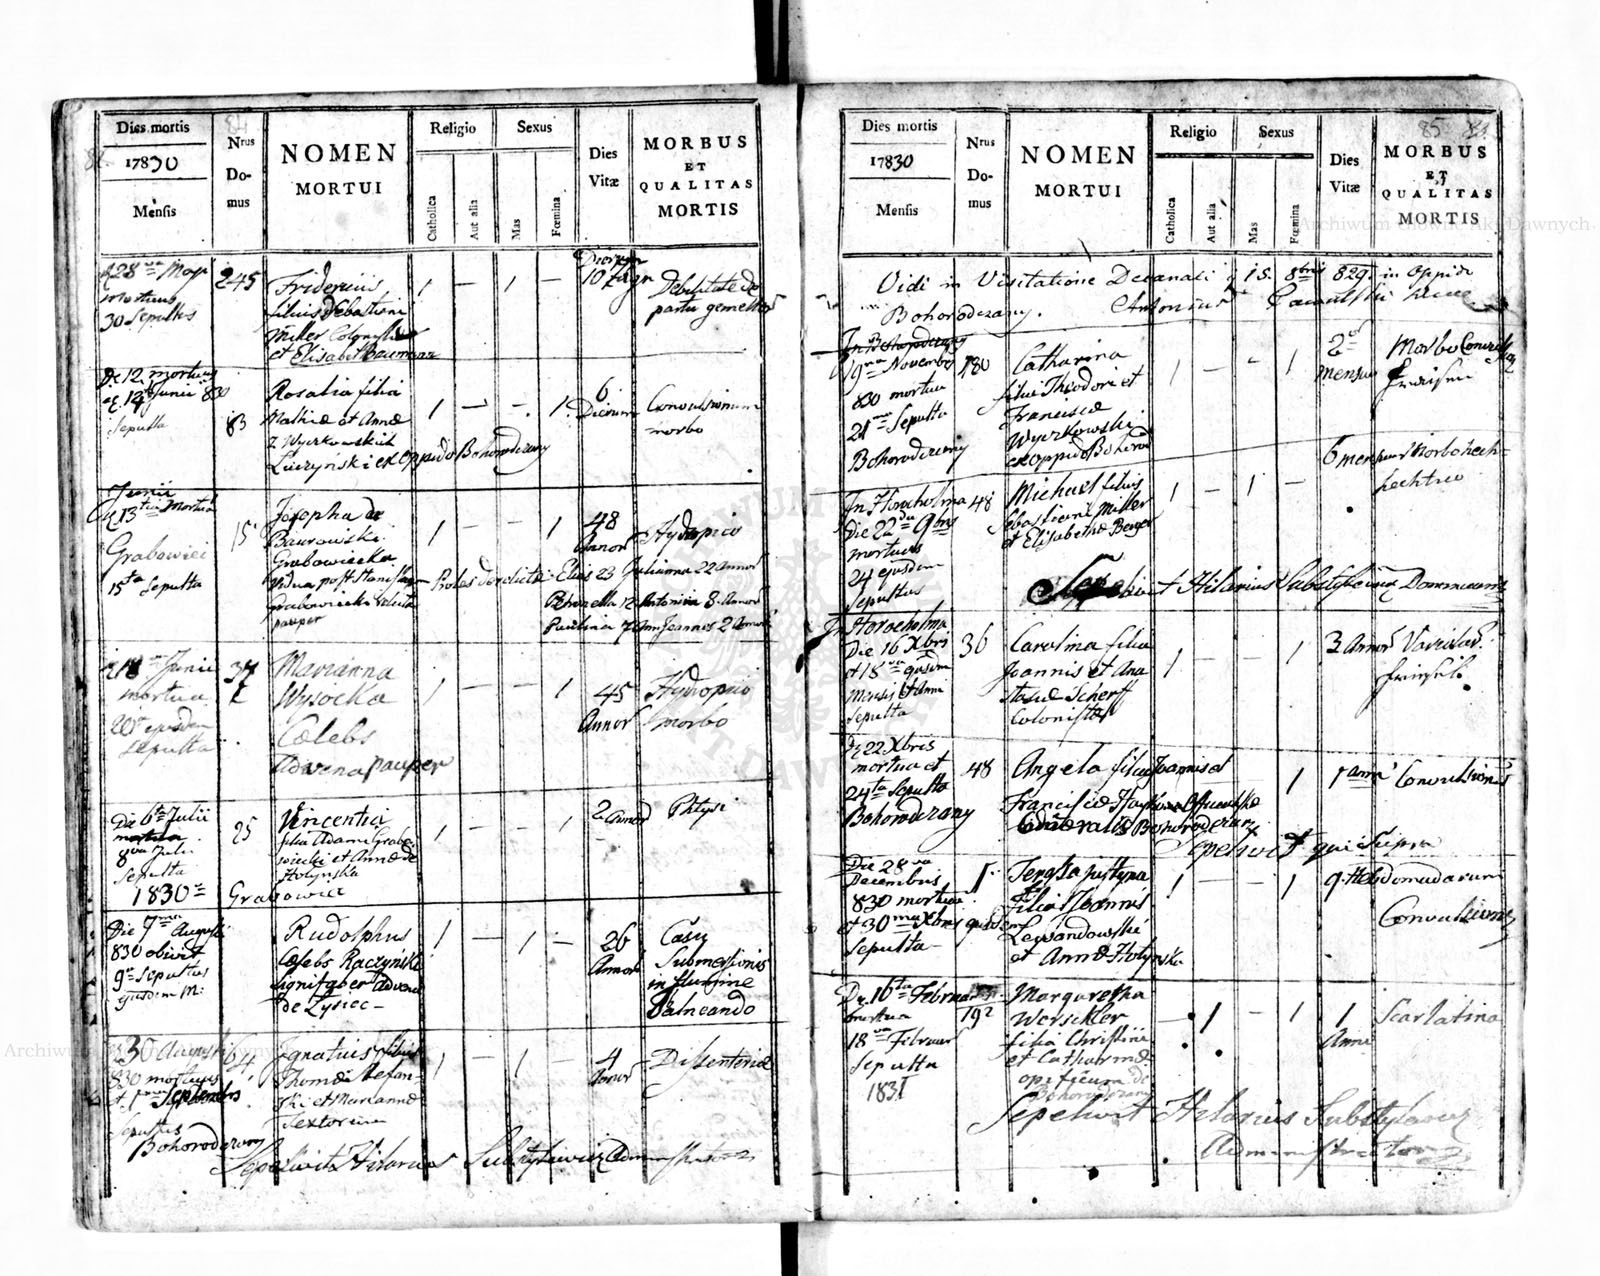 Dies mortis
17830
Mensis
Nrus
Do-
mus
NOMEN
MORTUI
Religio
Sexus
Catholica
Aut alia
Mas
Fœmina
Dies
Vitæ
MORBUS
ET
QUALITAS
MORTIS
28va
mortuus
30 Sepultus
245
Fridericus
filius Sebastiani
Miller
et Elisabet Bauman
1 — 1 —
10
Debilitate de
partu gemellor
De 12 mortua
12 Junii 830
Sepulta
83
Rosalia filia
Mathiæ et Annæ
z Wyczkowskich
Luczyński ex Oppido Bohorodczany
1 — — 1
6
Dierum
Convulsionum
morbo
Junii
13tia Mortua
Grabowiei
15ta Sepulta
15
Josepha de
Baurowski
Grabowiecka
Vidua post Stanislaum
Grabowiecki relicta
pauper
1 — — 1
48
Annor
Hydropico
Proles derelicta: Elias 23 Julianna 22 Annor
Petronella 12 Antonina 8 Annor
Paulina 7 Ann Joannes 2 Annor
18 Junii
mortua
20 ejusdem
Sepulta
37
Marianna
Wysocka
Cælebs
Advena pauper
1 — — 1
45
Annor
Hydropico
morbo
Die 6ta Julii
mortua
8va Julii
Sepulta
1830
Grabowca
25
Vincentia
filia Adami Grabo
wiecki et Annæ de
Hołyńska
1 — — 1
2 Annor
Phtysi
Die 7ma Augusti
830 obivit
9 Sepultus
ejusdem M:
Rudolphus
Cælebs Raczyński
Lignifaber Advena
de Lysiec —
1 — 1 —
26
Annor
Casu
Submersionis
in flumine
Balneando
30 Augusti
830 mortuus
et 1ma Septembris
Sepultus
Bohorodczany
64
Ignatius filius
Thomæ Stefan-
ski et Mariannæ
Textorum
1 — 1 —
4
Annor
Dissenteria
Sepelivit Hilarius Substylewicz Administrator
Dies mortis
17830
Mensis
Nrus
Do-
mus
NOMEN
MORTUI
Religio
Sexus
Catholica
Aut alia
Mas
Fœmina
Dies
Vitæ
85
MORBUS
ET
QUALITAS
MORTIS
Vidi in Visitatione Decanali 15 8bris 829 in Oppido
Bohorodczany. Antonius
In Bohorodczany
19na Novembr
830 mortua
21ma Sepulta
Bohorodczany
180
Catharina
filia Theodori et
Franciscæ
Wyczkowski
ex Oppido Bohorod
1 — — 1
2
mensium
Morbo Convulsion
Fraisen
In Horocholina
Die 22da 9bris
mortuus
24 ejusdem
Sepultus
48
Michael filius
Sebastiani Miller
et Elisabethæ Berger
1 — 1 —
6 mensium
Morbo hech-
hechtico
Sepelivit Hilarius Substylewicz
Horocholina
Die 16 Xbris
et 18va ejusdem
Mensis et Anni
Sepulta
36
Carolina filia
Joannis et Ana
stasiæ Scherff
Colonistar
1 — — 1
3 Annor
22 Xbris
mortua et
24ta Sepulta
Bohorodczany
48
Angela filia Joannis et
Franciscæ
Bohorodczany
1
1 anni
Convulsionis
Sepelivit qui Supra
Die 28va
Decembris
830 mortua
et 30ma Xbris ejusdem
Sepulta —
1
Teresia Justyna
filia Joannis
Lewandowski
et Annæ Hołyńska
1 — — 1
9 Hebdomadarum
Convulsionis
Die 16ta Februar
mortua
18va Februar
Sepulta
1831
192
Margaretha
Werschler
filia Christiani
et Catharinæ
opificum de
Bohorodczany
— 1 — 1
1
Anni
Scarlatina
Sepelivit Hilarius Substylewicz
Administrator
Archiwum Główne Akt Dawnych